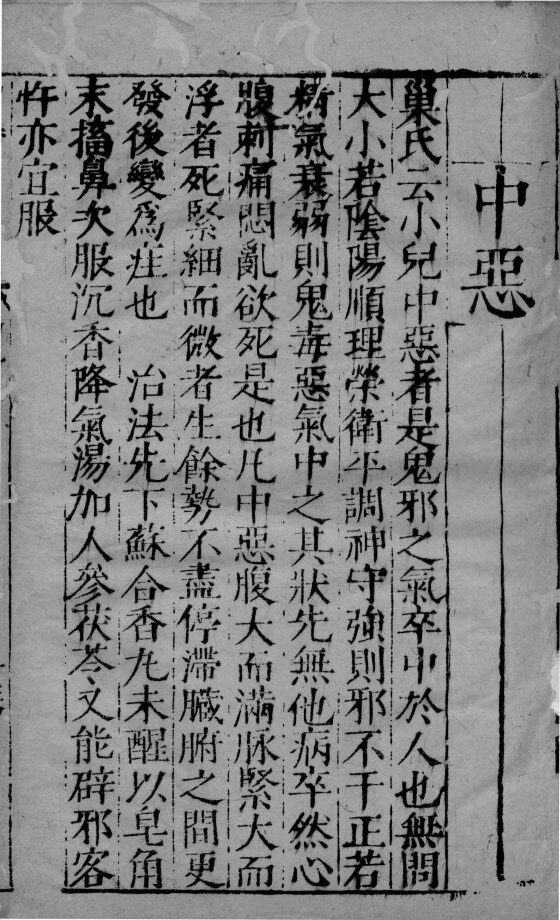 中惡
巢氏云小兒中惡者是鬼邪之氣卒中於人也無問
大小若陰陽順理榮衛平調神守強則邪不干正若
精氣衰弱則鬼毒惡氣中之其狀先無他病卒然心
腹刺痛悶亂欲死是也凡中惡腹大而滿脉緊大而
浮者死緊細而微者生餘勢不盡停滯臟腑之間更
發後變爲疰也　治法先下蘇合香丸未醒以皂角
末搐鼻次服沉香降氣湯加人參茯苓又能辟邪客
忤亦宜服